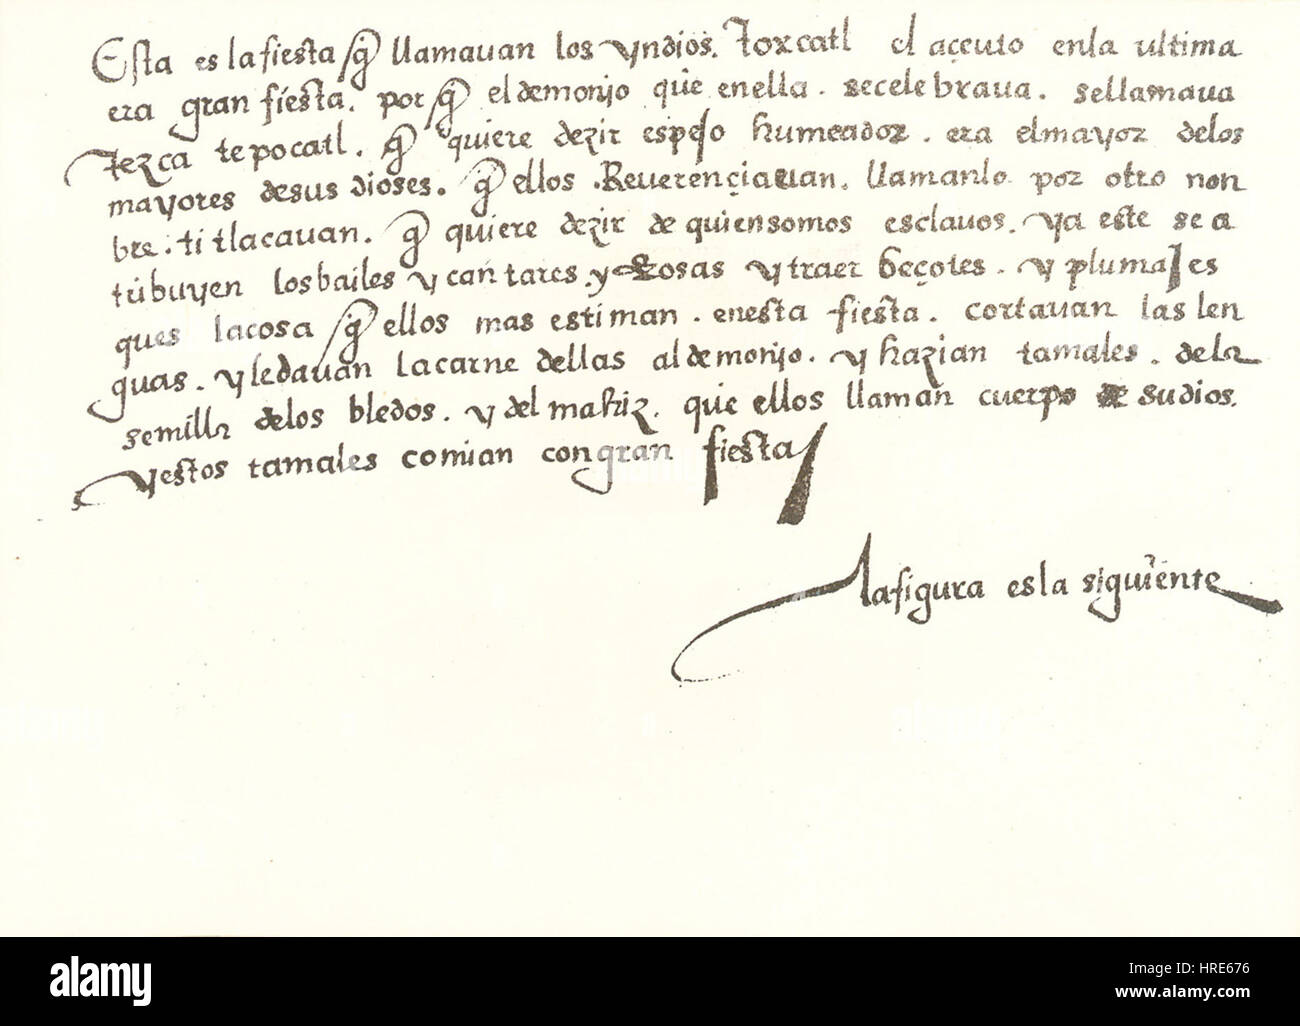 Esta es la fiesta q̃ llamavan los yndios. toxcatl el açeuto enla ultima
era gran fiesta. por q̃ el demonjo que enella. secelebrava. sellamava
tezca tepocatl. q̃ quiere dezir espejo humeador. era elmayor delos
mayores desus dioses. q̃ ellos. Reverençiavan. llamanlo por otro non
bre. titlacavan. q̃ quiere dezir de quiensomos esclavos. ya este se a
tribuyen losbailes y cantares. y Rosas y traer beçotes. y plumajes
ques lacosa q̃ ellos mas estiman. enesta fiesta. cortavan las len
guas. yledavan lacarne dellas aldemonjo. y hazian tamales. dela
semilla delos bledos. y del mahiz. que ellos llaman cuerpo de sudios.
yestos tamales comian congran fiesta
lafigura esla siguiente
alamy
Image ID: HRE676
www.alamy.com